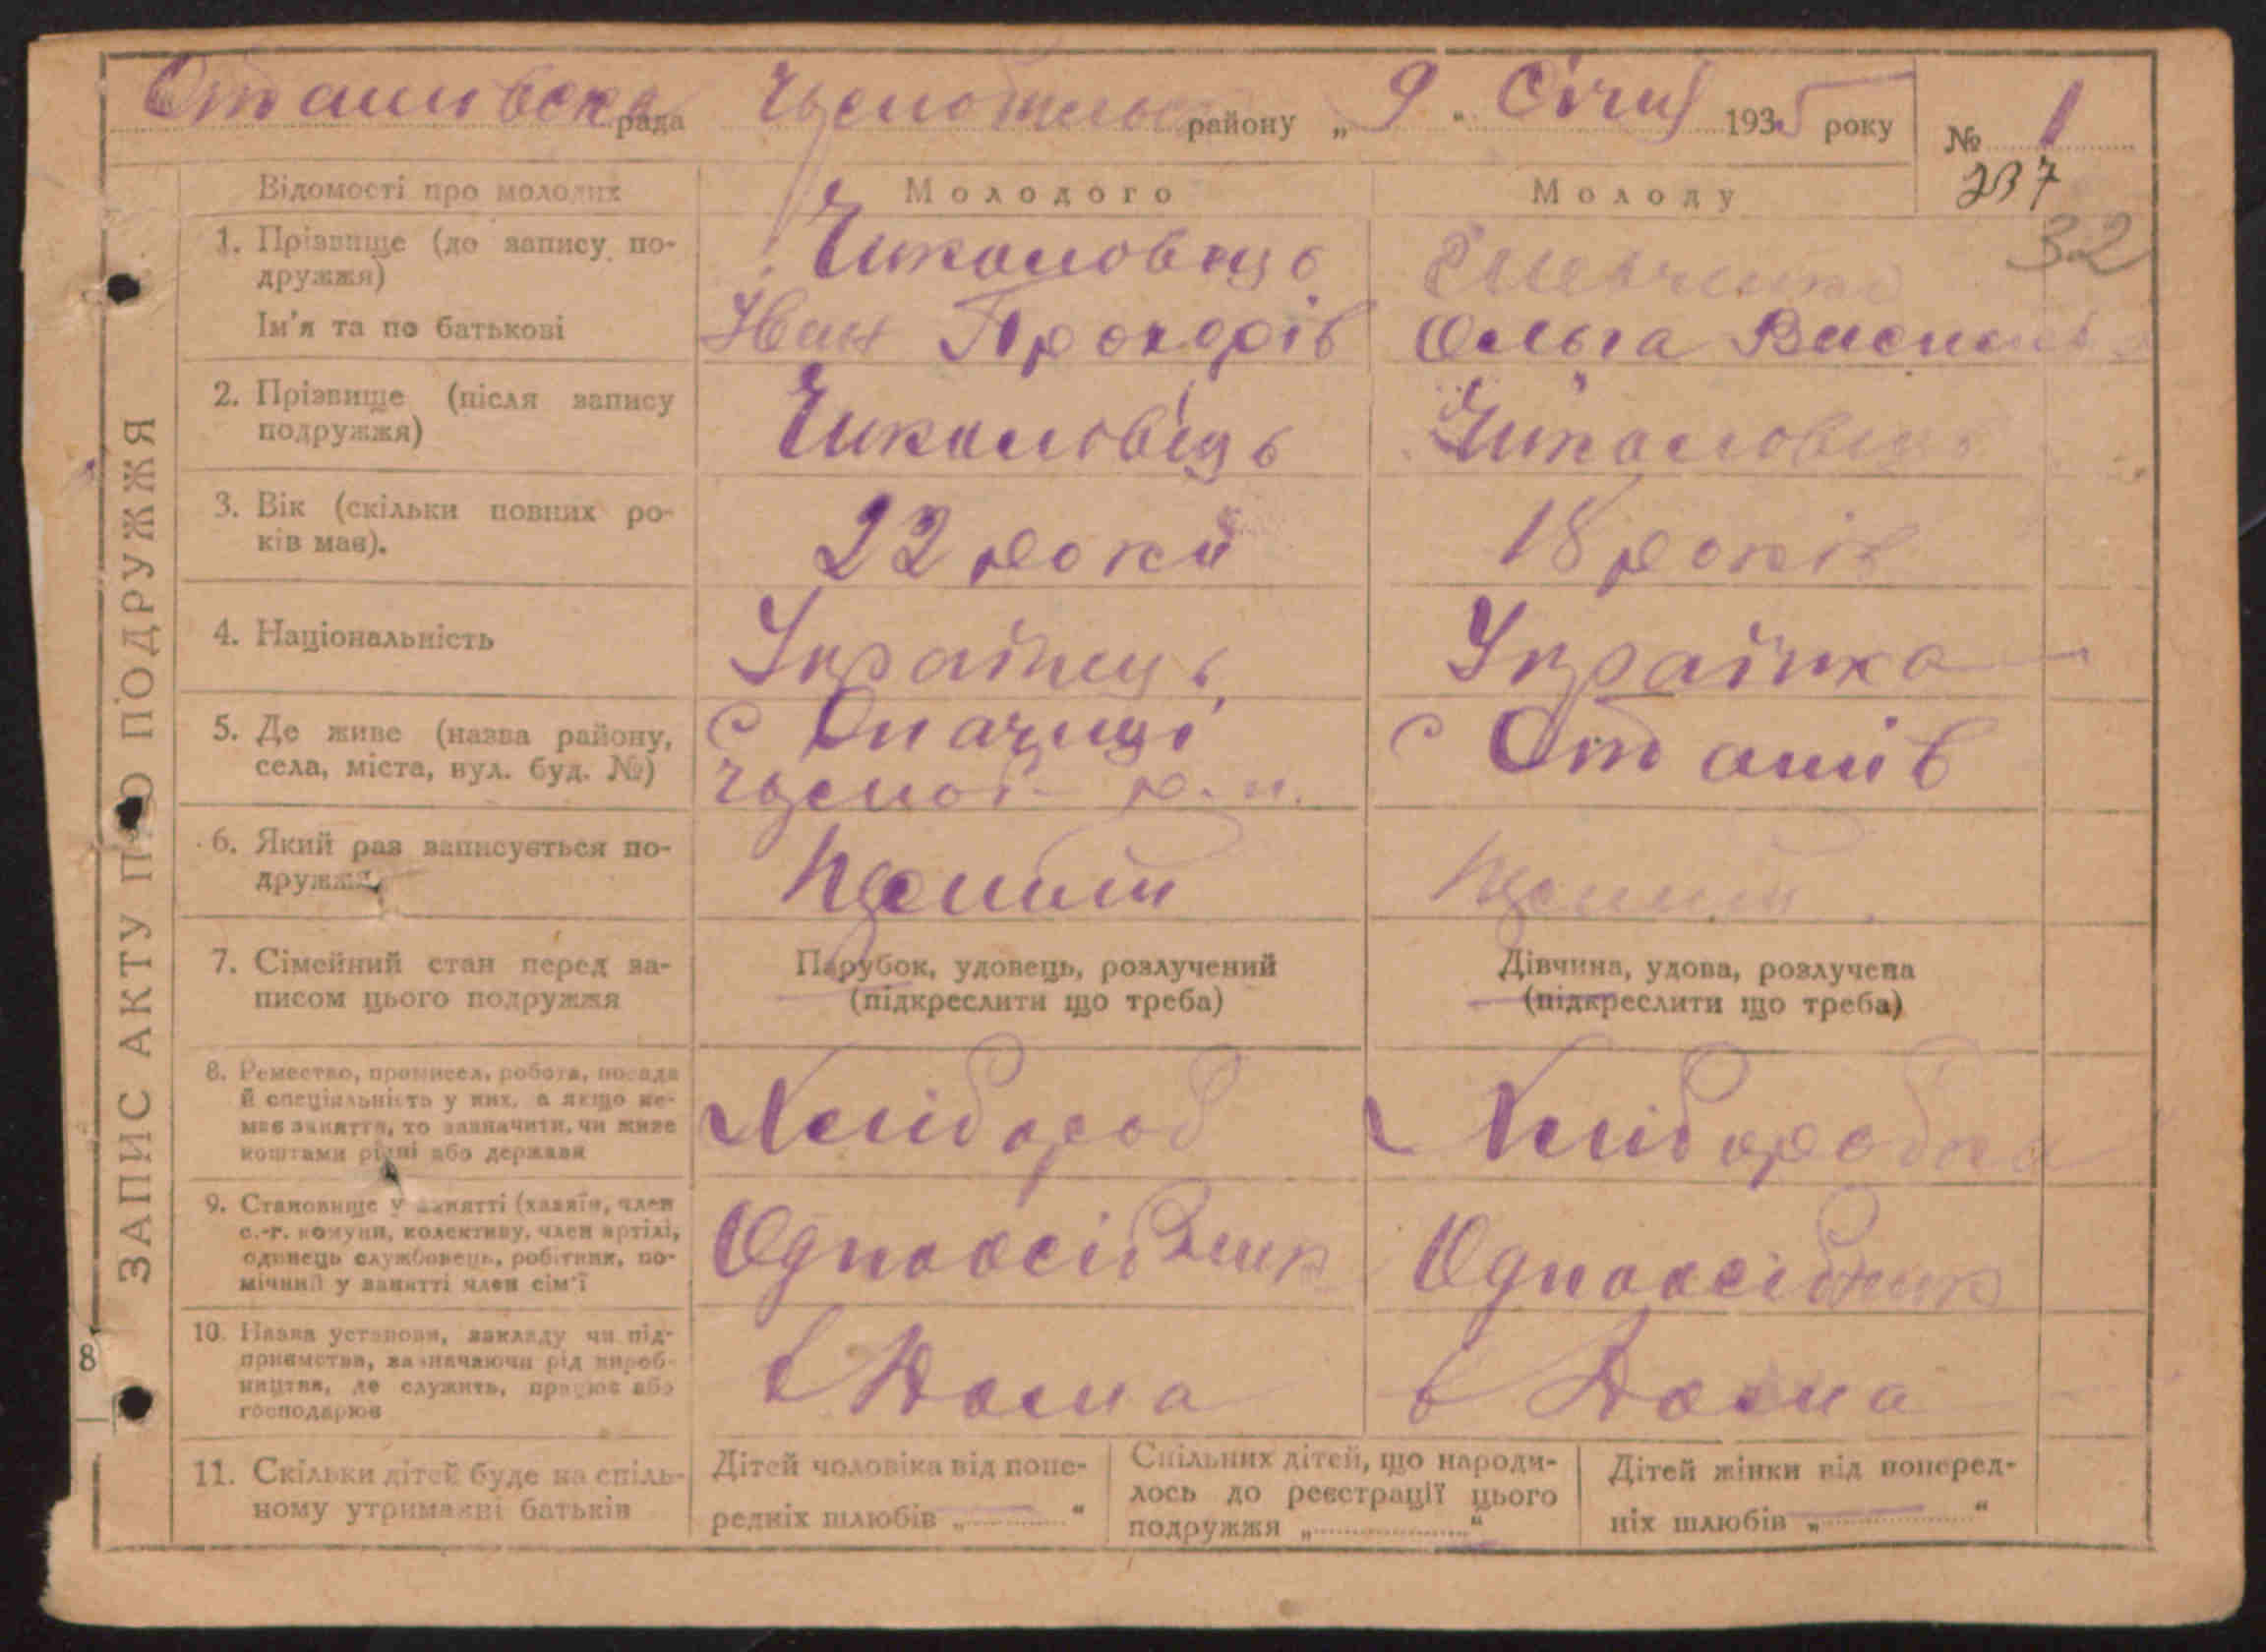 Оташивска рада Чорнобильс району „9“ Січня 1935 року № 1
237
32
ЗАПИС АКТУ ПРО ПОДРУЖЖЯ
8
Відомості про молодих Молодого Молоду
1. Прізвище (до запису по-
дружжя)
Чикаловець
Ім'я та по батькові
Іван Прохорів Ольга Василів
2. Прізвище (після запису
подружжя)
Чикаловець Чикаловець
3. Вік (скільки повних ро-
ків має).
22 роки 18 років
4. Національність
Українець Українка
5. Де живе (назва району,
села, міста, вул. буд. №)
с Опачичі с Оташів
Чорноб р. н.
6. Який раз записується по-
дружжя
7. Сімейний стан перед за-
писом цього подружжя
Парубок, удовець, розлучений
(підкреслити що треба)
Дівчина, удова, розлучена
(підкреслити що треба)
8. Ремество, промисел, робота, посада
й спеціяльність у них, а якщо не-
має заняття, то зазначити, чи живе
коштами рідні або держави
Хлібороб Хлібороб
9. Становище у занятті (хазяїн, член
с.-г. комуни, колективу, член артілі,
одинець службовець, робітник, по-
мічний у занятті член сім'ї
Одноосібник Одноосібник
10. Назва установи, закладу чи під-
приємства, зазначаючи рід вироб-
ництва, де служить, працює або
господарює
в Дома в Дома
11. Скільки дітей буде на спіль-
ному утриманні батьків
Дітей чоловіка від попе-
редніх шлюбів „ — “
Спільних дітей, що народи-
лось до реєстрації цього
подружжя „ “
Дітей жінки від поперед-
ніх шлюбів „ — “